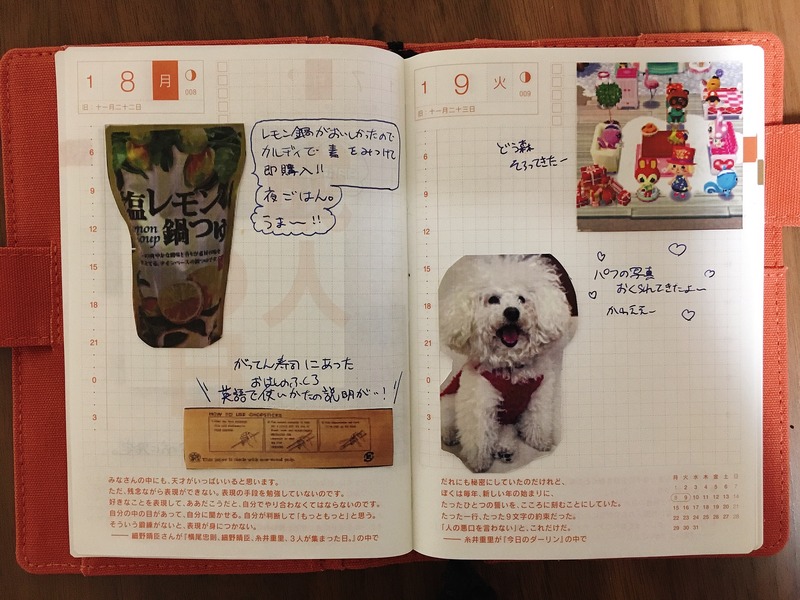 1 8 月 008
旧 十一月二十二日
6
9
12
15
18
21
0
3
塩レモン
鍋つゆ
レモン鍋がおいしかったので
カルディで 素 をみつけて
即購入!!
夜ごはん。
うま〜!!
がってん寿司にあった
おはしのふくろ
英語で使いかたの説明が…!
HOW TO USE CHOPSTICKS
みなさんの中にも、天才がいっぱいいると思います。
ただ、残念ながら表現ができない。表現の手段を勉強していないのです。
好きなことを表現して、ああだこうだと、自分でやり合わなくてはならないのです。
自分の中の目があって、自分に聞かせる。自分が判断して「もっともっと」と思う。
そういう訓練がないと、表現が身につかない。
—— 細野晴臣さんが『横尾忠則、細野晴臣、糸井重里、3人が集まった日。』の中で
1 9 火 009
旧 十一月二十三日
6
9
12
15
18
21
0
3
どう森
そろってきたー
パフの写真
おくられてきたよ〜
かわええー
だれにも秘密にしていたのだけれど、
ぼくは毎年、新しい年の始まりに、
たったひとつの誓いを、こころに刻むことにしていた。
たった一行、たった9文字の約束だった。
「人の悪口を言わない」と、これだけだ。
—— 糸井重里が『今日のダーリン』の中で
月 火 水 木 金 土 日
1 2 3 4 5 6 7
8 9 10 11 12 13 14
15 16 17 18 19 20 21
22 23 24 25 26 27 28
29 30 31